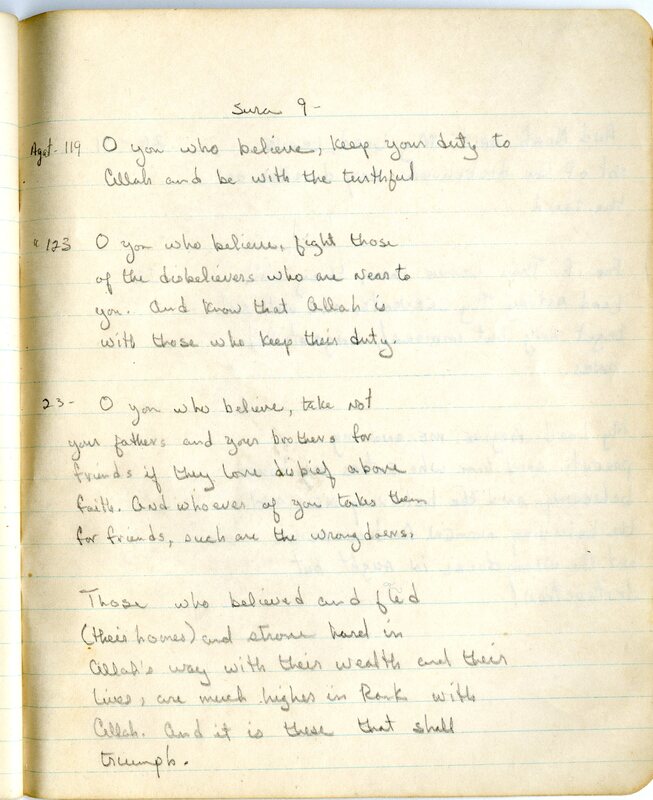 Sura 9 -
Ayat - 119 O you who believe, keep your duty to
Allah and be with the truthful
" 123 O you who believe, fight those
of the disbelievers who are near to
you. And know that Allah is
with those who keep their duty.
23 - O you who believe, take not
your fathers and your brothers for
friends if they love disbief above
faith. And whoever of you takes them
for friends, such are the wrongdoers.
Those who believed and fled
(their homes) and strove hard in
Allah's way with their wealth and their
lives, are much higher in Rank with
Allah. And it is these that shall
triumph.